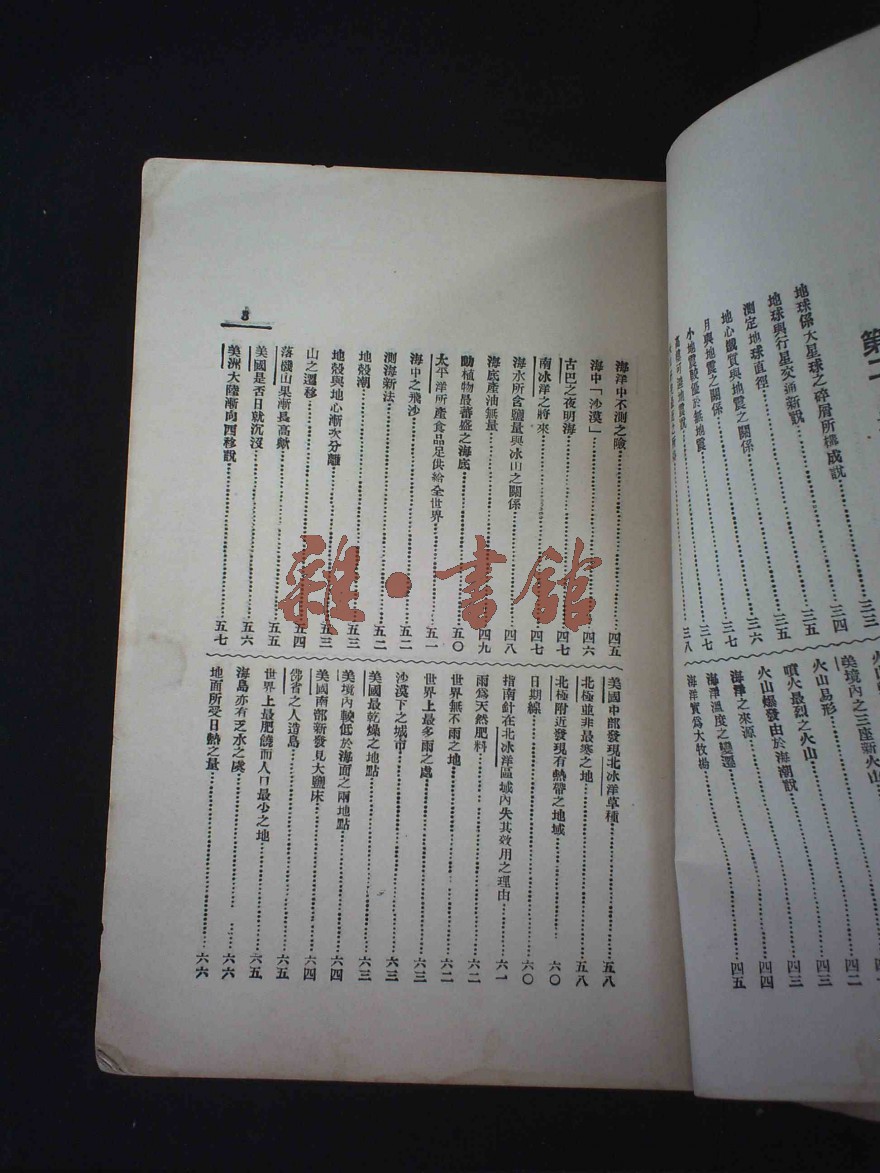 第二
地球係大星球之碎屑所構成說……三三
地球與行星交通新說……三四
測定地球直徑……三五
地心體質與地震之關係……三六
月與地震之關係……三七
小地震較優於無地震……三七
三八
美境內之三座新火山……四二
火山易形……四三
噴火最烈之火山……四三
火山爆發由於海潮說……四四
海洋之來源
海洋溫度之變遷
海洋實爲大牧場……四五
海洋中不測之險……四五
海中「沙漠」……四六
古巴之夜明海……四七
南冰洋之將來……四七
海水所含鹽量與冰山之關係……四八
海底產油無量……四九
動植物最蕃盛之海底……五〇
太平洋所產食品足供給全世界……五一
海中之飛沙……五二
測海新法……五二
地殼潮……五三
地殼與地心漸次分離……五三
山之遷移……五四
落機山果漸長高歟……五五
美國是否日就沉沒……五六
美洲大陸漸向西移說……五七
美國中部發現北冰洋草種……五八
北極並非最寒之地……五八
北極附近發現有熱帶之地域……六〇
日期線……六〇
指南針在北冰洋區域內失其效用之理由……六一
雨爲天然肥料……六二
世界無不雨之地……六二
世界上最多雨之處……六三
沙漠下之城市……六三
美國最乾燥之地點……六三
美境內較低於海面之兩地點……六四
美國南部新發見大鹽床……六四
佛省之人造島……六五
世界上最肥饒而人口最少之地……六五
海島亦有乏水之虞……六六
地面所受日熱之量……六六
8
雜·書館